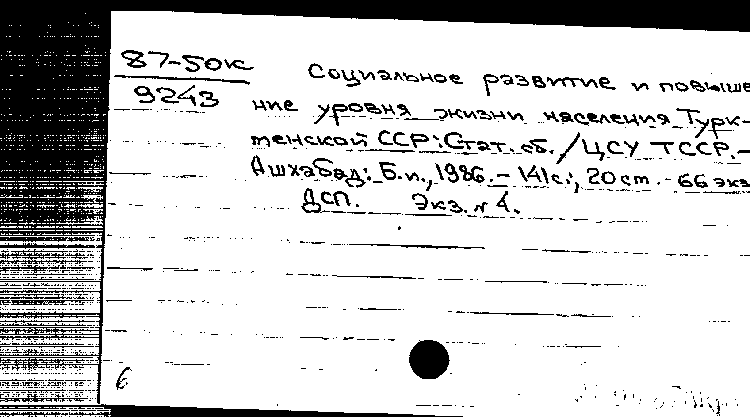 87-50к
9243
Социальное развитие и повыше
ние уровня жизни населения Турк-
менской ССР: Стат. сб. / ЦСУ ТССР. -
Ашхабад: Б.и., 1986. - 141с.; 20 cm. - 66 экз
ДСП. Экз. № 4.
6